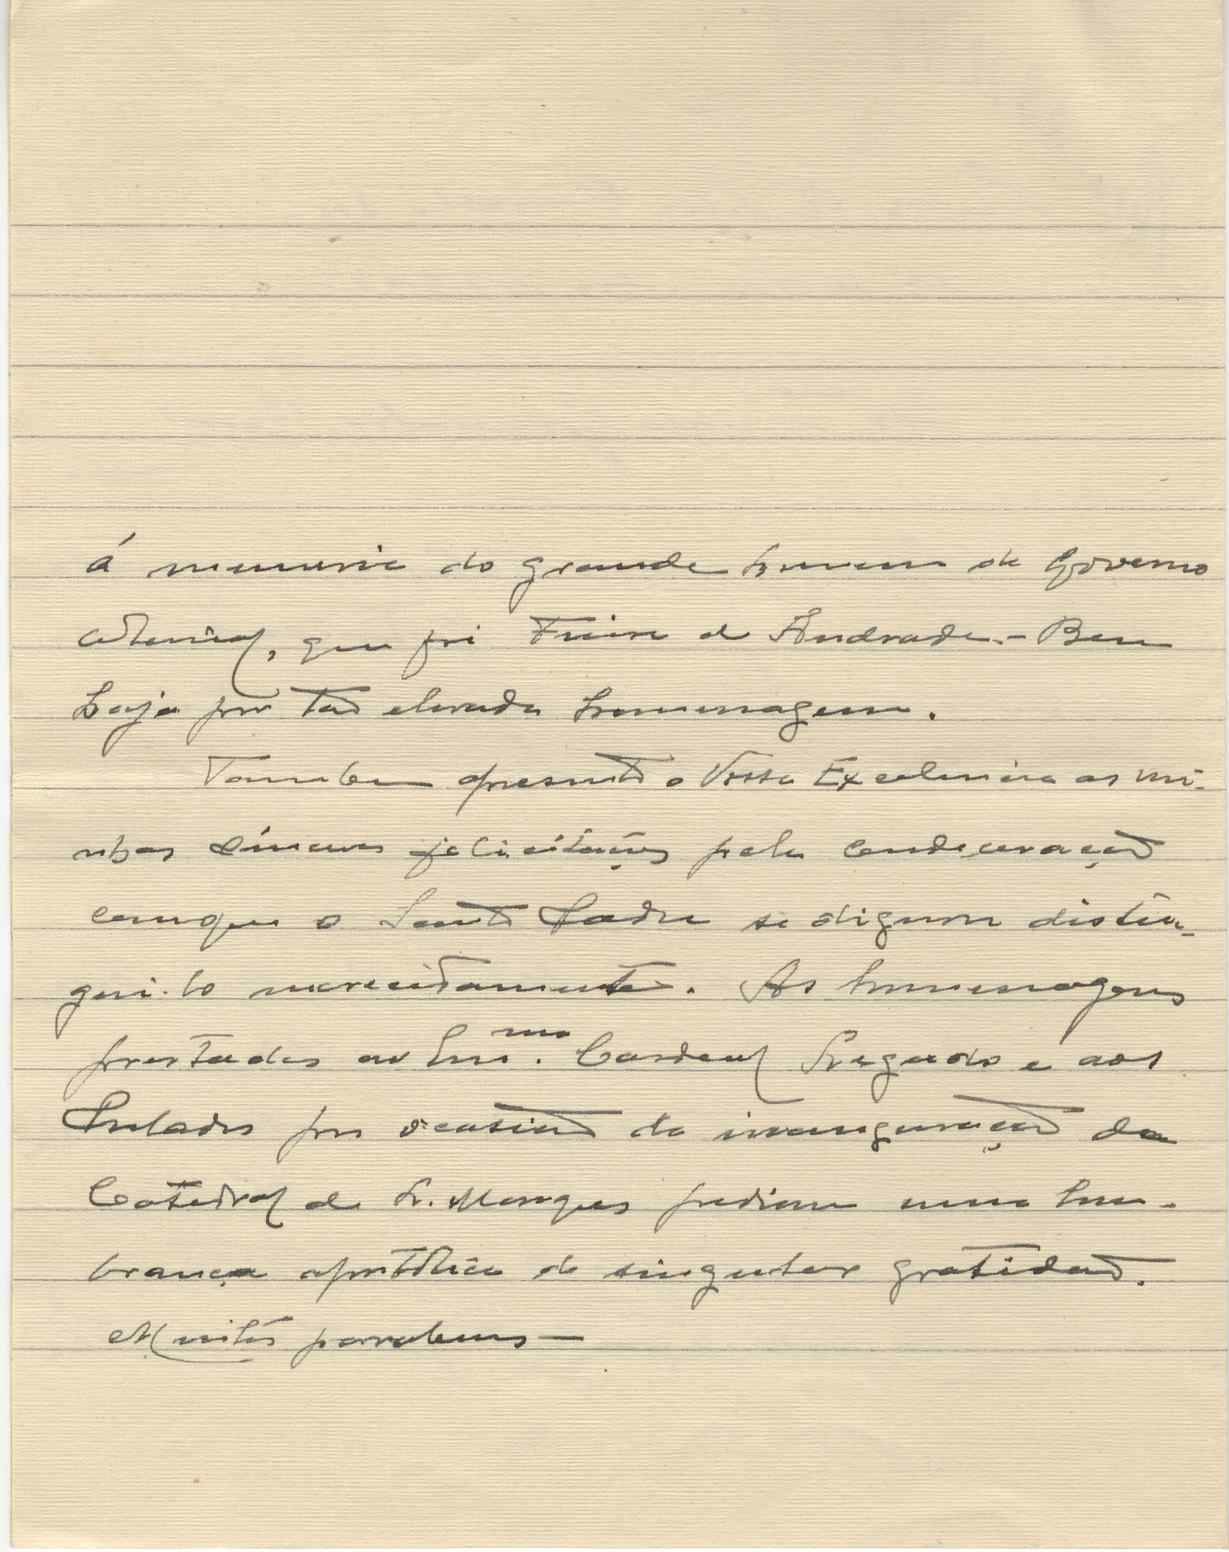 á memoria do grande homem de Governo
colonial, que foi Freire de Andrade. - Bem
haja por tão elevada homenagem.
Tambem apresento a Vossa Excelencia as mi-
nhas sinceras felicitações pela condecoração
com que o Santo Padre se dignou distin-
gui-lo merecidamente. As homenagens
prestadas ao Em.mo Cardeal Legado e aos
Prelados por ocasião da inauguração da
Catedral de L. Marques pediam uma lem-
brança apostólica de singular gratidão.
Muitos parabens -